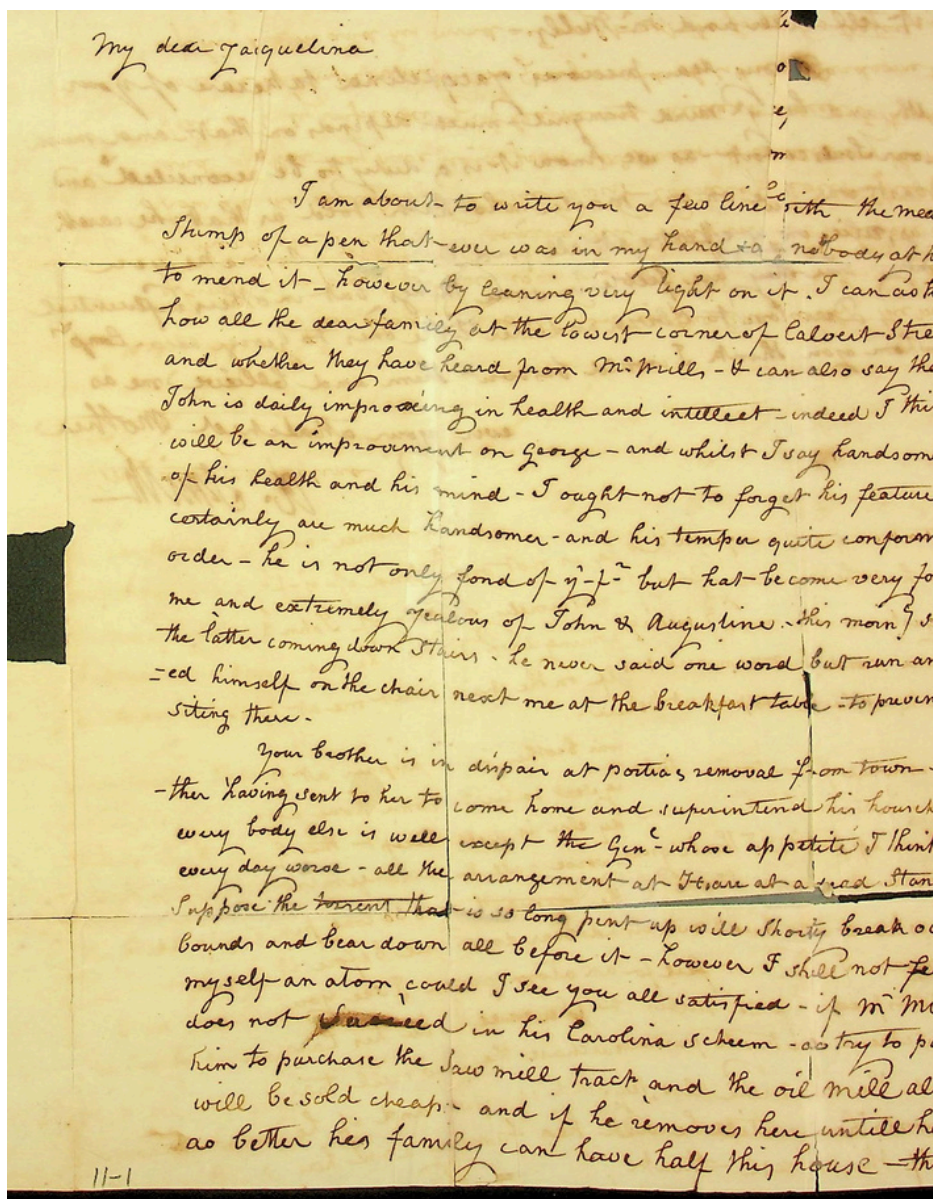 My dear Jaquelina
I am about to write you a few line with the mea
Stump of a pen that ever was in my hand & nobody at h
to mend it - however by leaning very light on it. I can ask
how all the dear family at the lowest corner of Calvert Stre
and whether they have heard from Mr. Mills - & can also say tha
John is daily improveing in health and intellect - indeed I thi
will be an improvement on George - and whilst I say handsom
of his health and his mind - I ought not to forget his feature
certainly are much handsomer - and his temper quite conform
order - he is not only fond of but hat become very fo
me and extremely jealous of John & Augustine - this morng s
the latter coming down Stairs - he never said one word but run an
=ed himself on the chair next me at the breakfast table - to preven
siting there -
Your brother is in dispair at portias removal from town -
-ther having sent to her to come home and superintend his househ
every body else is well except the Genl - whose appetite I think
every day worse - all the arrangement at are at a dead Stan
Suppose the torrent that is so long pent up will Shortly break o
bounds and bear down all before it - however I shall not fe
myself an atom could I see you all satisfied - if Mr M
does not Succeed in his Carolina scheem - do try to p
him to purchase the Saw mill tract and the oil mill al
will be sold cheap - and if he removes here untill h
do better his family can have half this house - th
11-1